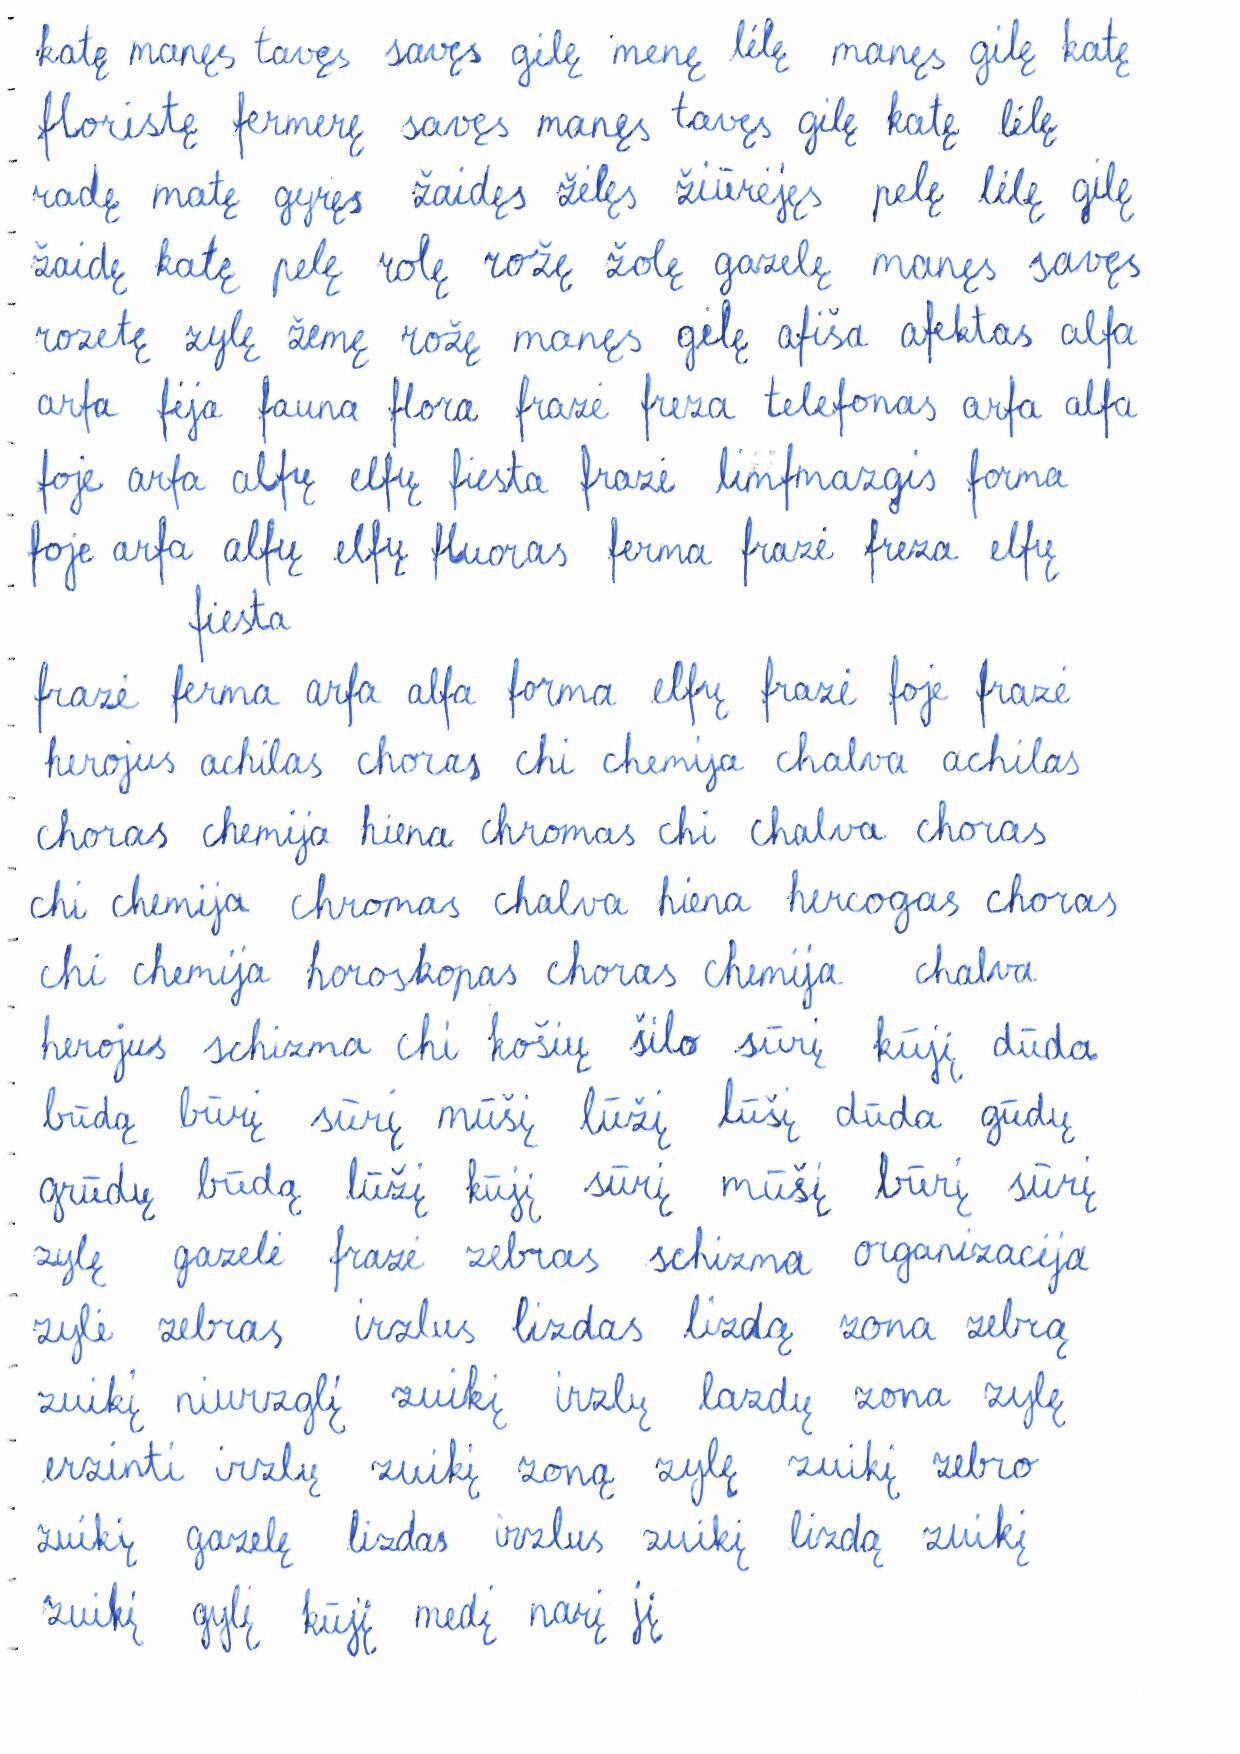 katę manęs tavęs savęs gilę menę lėlę manęs gilę katę
floristę fermerę savęs manęs tavęs gilę katę lėlę
radę matę gyręs žaidęs žėlęs žiūrėjęs pelę lėlę gilę
žaidę katę pelę rolę rožę žolę gazelę manęs savęs
rozetę zylę žemę rožę manęs gėlę afiša afektas alfa
arfa fėja fauna flora frazė freza telefonas arfa alfa
foje arfa alfų elfų fiesta frazė limfmazgis forma
foje arfa alfų elfų fluoras ferma frazė freza elfų
fiesta
frazė ferma arfa alfa forma elfų frazė foje frazė
herojus achilas choras chi chemija chalva achilas
choras chemija hiena chromas chi chalva choras
chi chemija chromas chalva hiena hercogas choras
chi chemija horoskopas choras chemija chalva
herojus schizma chi košių šilo sūrį kūjį dūda
būdą būrį sūrį mūšį lūžį lūšį dūda gūdų
grūdų būdą lūžį kūjį sūrį mūšį būrį sūrį
zylę gazelė frazė zebras schizma organizacija
zylė zebras irzlus lizdas lizdą zona zebrą
zuikį niurzglį zuikį irzlų lazdų zona zylę
erzinti irzlų zuikį zoną zylę zuikį zebro
zuikį gazelę lizdas irzlus zuikį lizdą zuikį
zuikį gylį kūjį medį narį jį